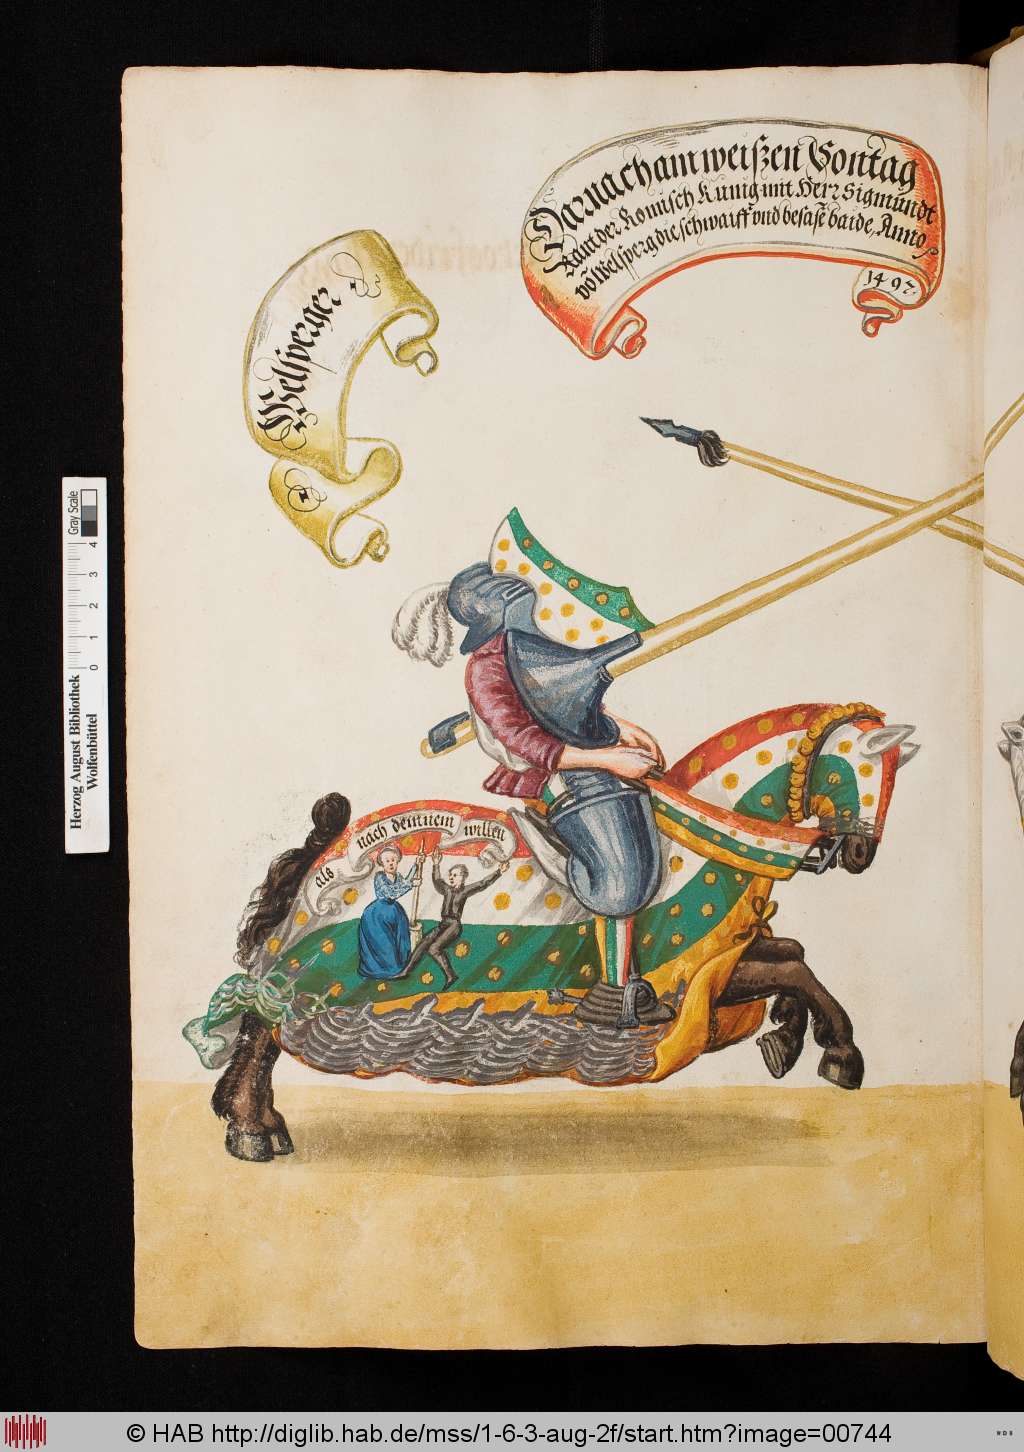 Darnach am weißen Sontag
Rant der Römisch Kunig mit Herr Sigmundt
vō Welsperg die schwaifft vnd besasē baide, Anno
1497
Welsperger
als nach deinnem willen
Herzog August Bibliothek
Wolfenbüttel
0 1 2 3 4
Gray Scale
© HAB http://diglib.hab.de/mss/1-6-3-aug-2f/start.htm?image=00744